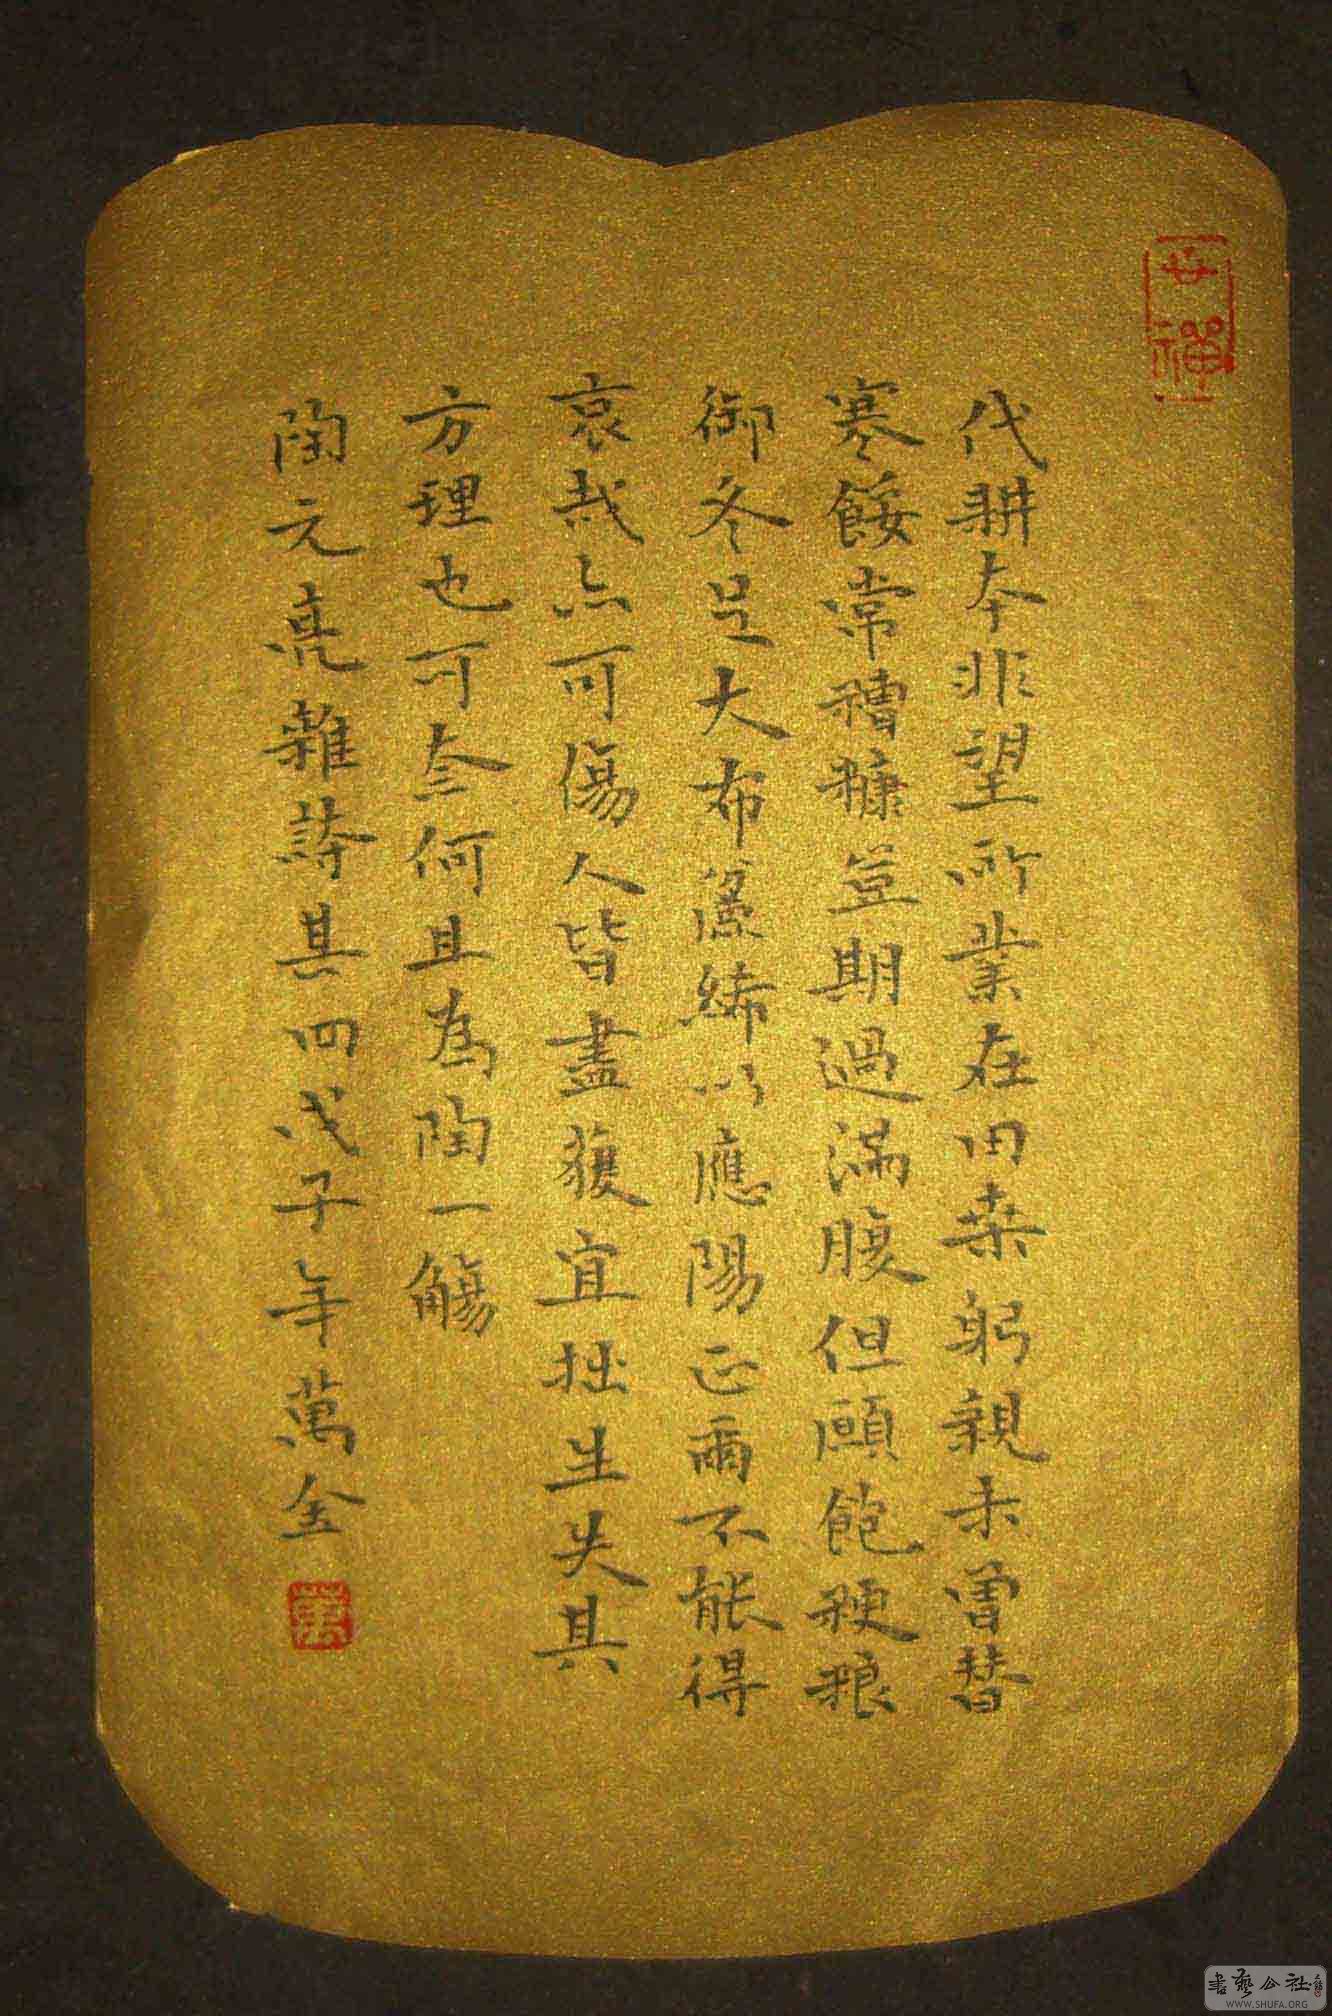 代耕本非望所業在田桑躬親未曾替
寒餒常糟糠豈期過滿腹但願飽粳粮
御冬足大布絺以應陽正爾不能得
哀哉亦可傷人皆盡獲宜拙生失其
方理也可奈何且為陶一觴
陶元亮雜詩其四戊子年萬金
書藝公社
WWW.SHUFA.ORG